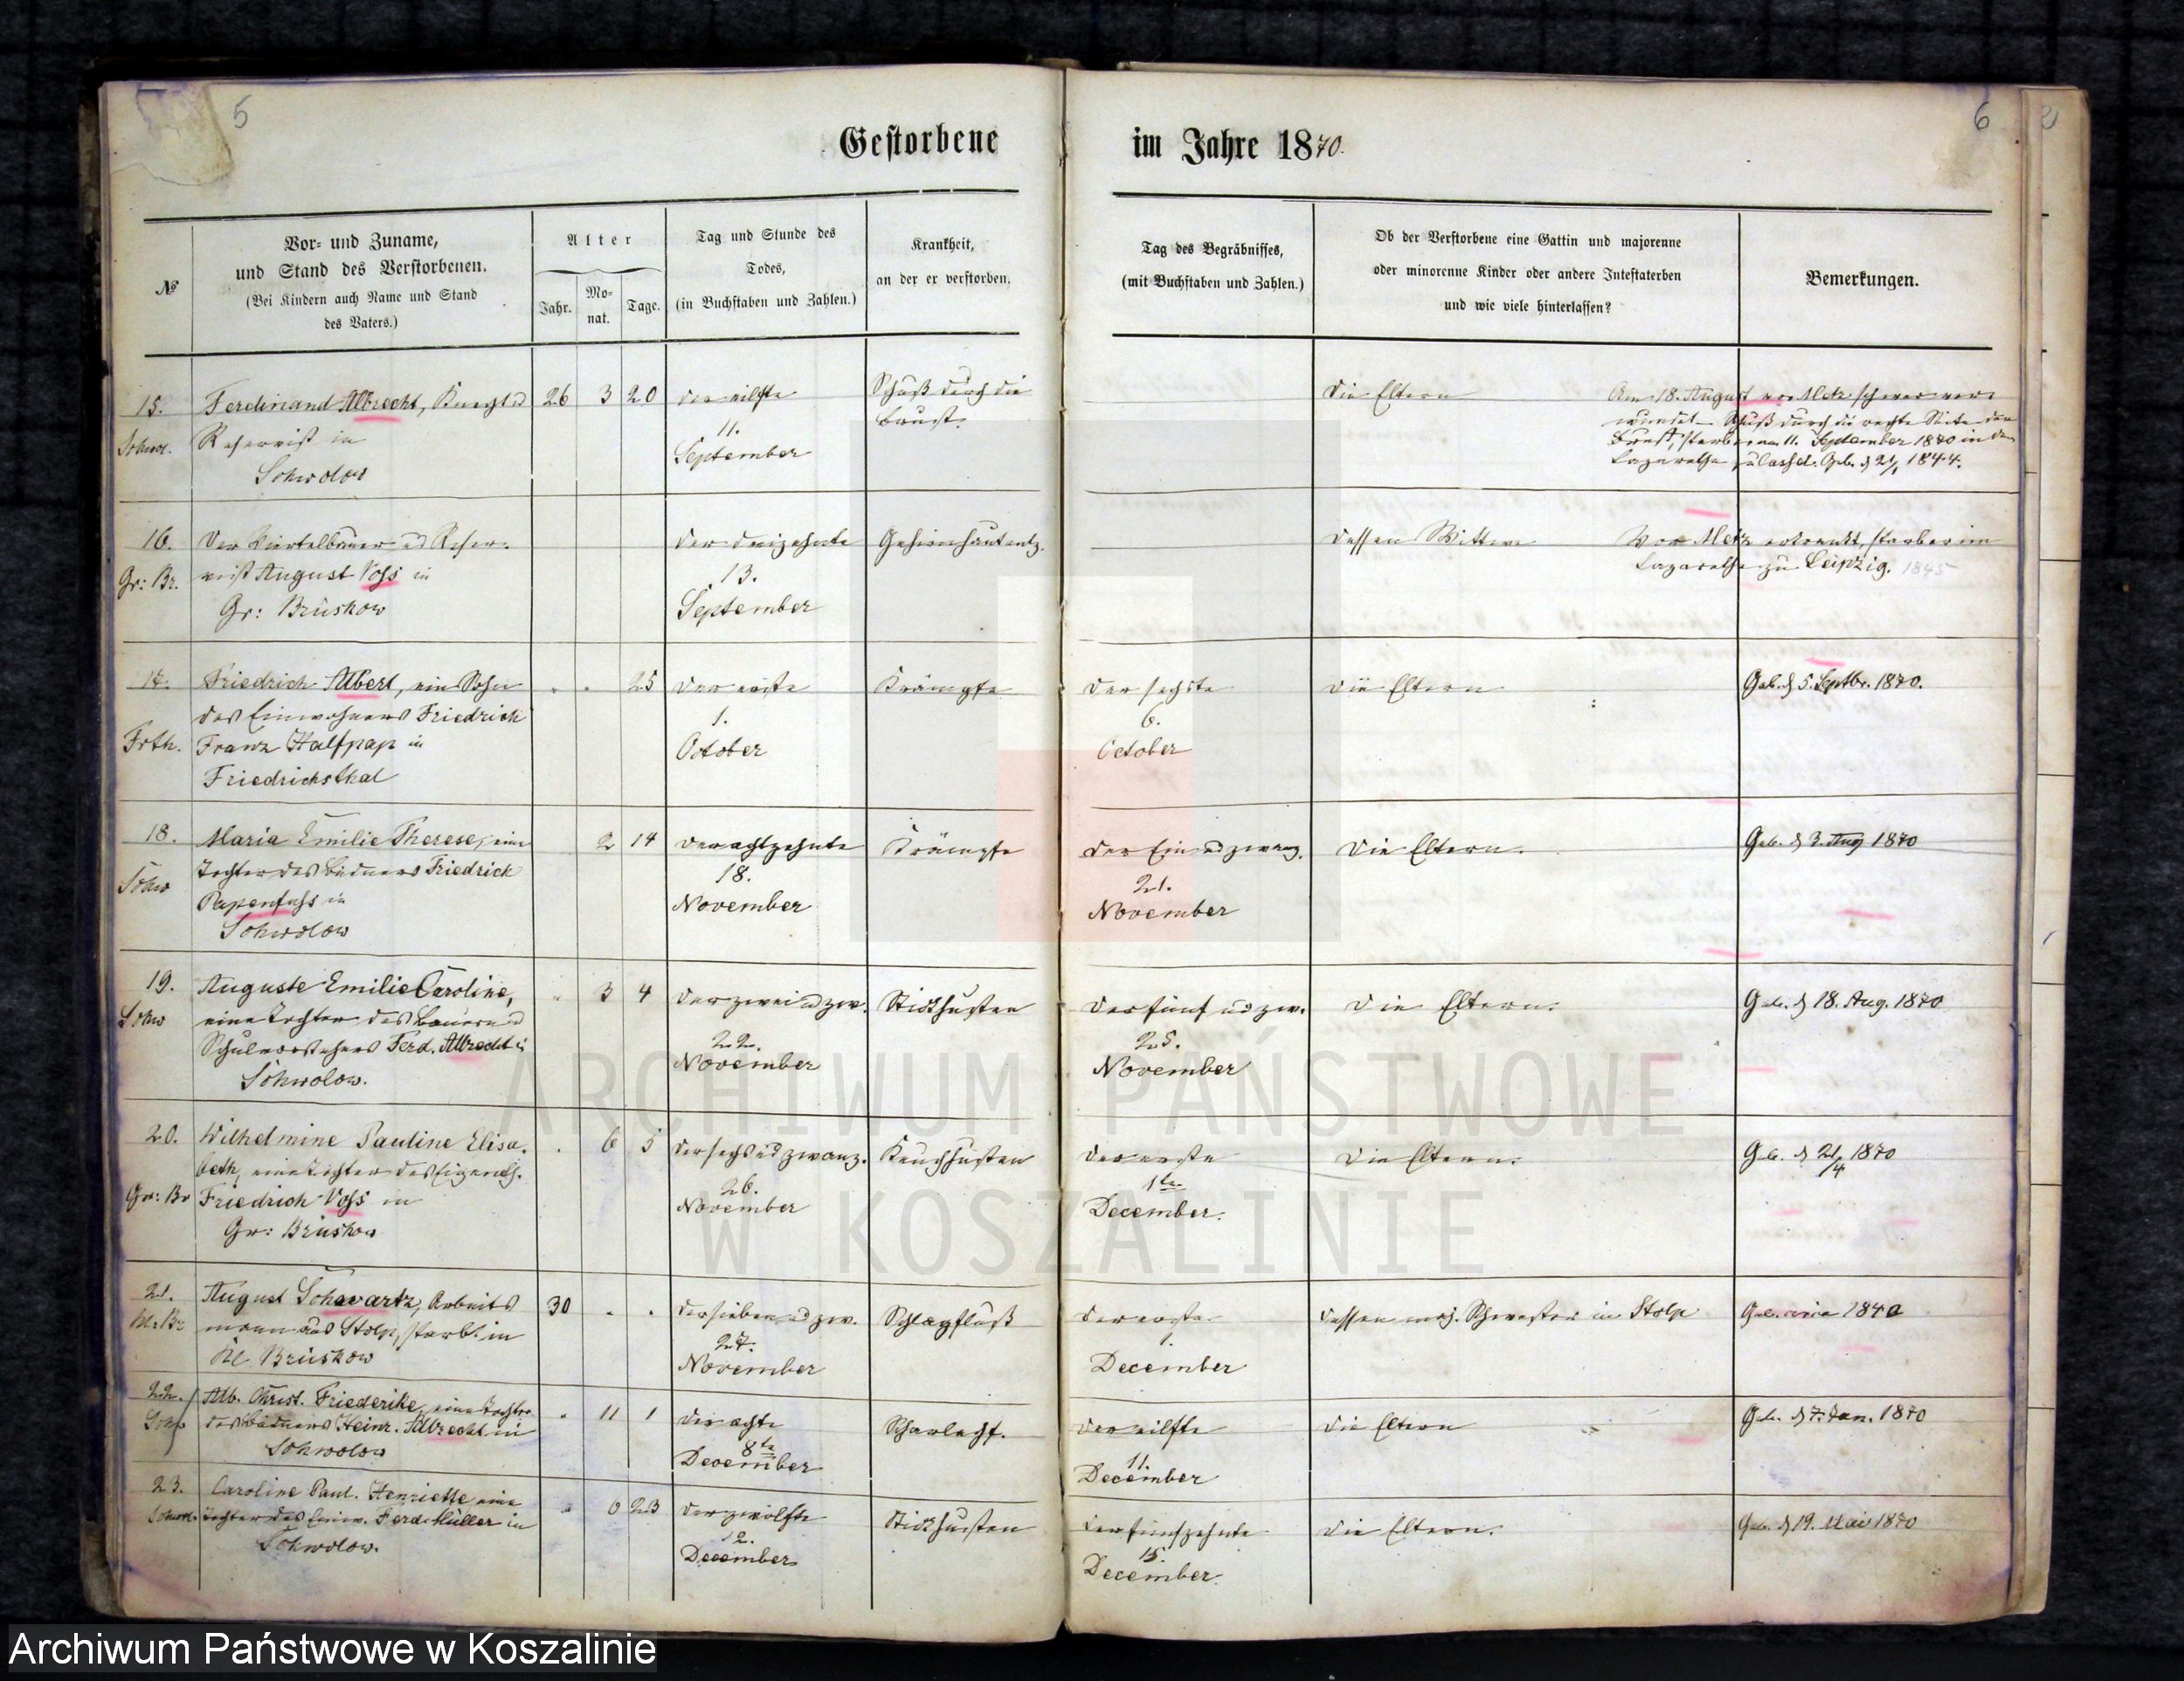 5
6
Gestorbene
im Jahre 1870.
№
Vor- und Zuname,
und Stand des Verstorbenen.
(Bei Kindern auch Name und Stand
des Vaters.)
Alter
Jahr.
Mo-
nat.
Tage.
Tag und Stunde des
Todes,
(in Buchstaben und Zahlen.)
Krankheit,
an der er verstorben.
Tag des Begräbnisses,
(mit Buchstaben und Zahlen.)
Ob der Verstorbene eine Gattin und majorenne
oder minorenne Kinder oder andere Intestaterben
und wie viele hinterlassen?
Bemerkungen.
15.
Ferdinand Albrecht, Knecht u
Reservist in
Sohwolow
26 3 20
der eilfte
11.
September
Schuß durch die
Brust.
Die Eltern
Am 18. August vor Metz schwer ver-
wundet Schuß durch die rechte Seite der
Brust, starb er am 11. September 1870 in
Lazarethe zu Cassel. Geb. d 21/ 1844.
16.
Gr: Br.
Der Viertelbauer ud Reser-
vist August Voss in
Gr: Brüskow
der dreizehnte
13.
September
Gehirnhautentz.
Dessen Wittwe
Vor Metz erkrankt, starb er im
Lazarethe zu Leipzig. 1845
17.
Frth.
Friedrich Albert, ein Sohn
des Einwohners Friedrich
Franz Halfpap in
Friedrichsthal
25
Der erste
1.
October
Krämpfe
Der sechste
6.
October
Die Eltern
Geb. d 5. Septbr. 1870.
18.
Sohw
Maria Emilie Therese, eine
Tochter des Büdners Friedrich
Papenfuss in
Sohwolow
2 14
Der achtzehnte
18.
November
Krämpfe
Der Ein ud zwanz.
21.
November
Die Eltern.
Geb. d 3. Aug 1870
19.
Sohw
Auguste Emilie Caroline,
eine Tochter des Bauern u
Schulvorstehers Ferd. Albrecht i
Sohwolow.
3 4
Der zwei ud zw.
22.
November
Stickhusten
Der fünf ud zw.
25.
November
Die Eltern.
Geb. d 18. Aug. 1870
20.
Gr: Br
Wilhelmine Pauline Elisa-
beth, eine Tochter des Eigenth.
Friedrich Voss in
Gr: Brüskow
6 5
Der sechs ud zwanz.
26.
November
Keuchhusten
Der erste
1te
December.
Die Eltern.
Geb. d 21/4 1870
21.
Kl: Br
August Schwartz, Arbeits
mann aus Stolp, starb in
Kl Brüskow
30
Der sieben ud zw.
27.
November
Schlagfluß
Der erste
1.
December
Dessen maj. Schwester in Stolp
Geb. circa 1840
22.
Alb. Christ. Friederike, eine Tochter
des Büdners Heinr. Albrecht in
Sohwolow
11 1
Der achte
8te
December
Scharlachf.
Der eilfte
11.
December
Die Eltern
Geb. d 7. Jan. 1870
23.
Caroline Paul. Henriette eine
Tochter des Einw. Ferd. Müller in
Sohwolow.
6 23
Der zwölfte
12.
December
Stickhusten
Der fünfzehnte
15.
December.
Die Eltern.
Geb. d 19. Mai 1870
ARCHIWUM PAŃSTWOWE
W KOSZALINIE
Archiwum Państwowe w Koszalinie